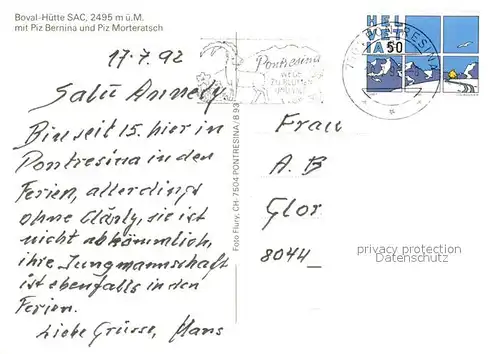 Boval-Hütte SAC, 2495 m ü.M.
mit Piz Bernina und Piz Morteratsch
17.7.92
Salü Annely
Bin seit 15. hier in
Pontresina in den
Ferien, allerdings
ohne Clärly, sie ist
nicht abkömmlich,
ihre Jungmannschaft
ist ebenfalls in den
Ferien.
Liebe Grüsse, Hans
Foto Flury, CH-7504 PONTRESINA/B 93
Pontresina
WEGE
ZU BLUMEN
HEL
VET
IA 50
PONTRESINA
Frau
A. B
Glor
8044
privacy protection
Datenschutz